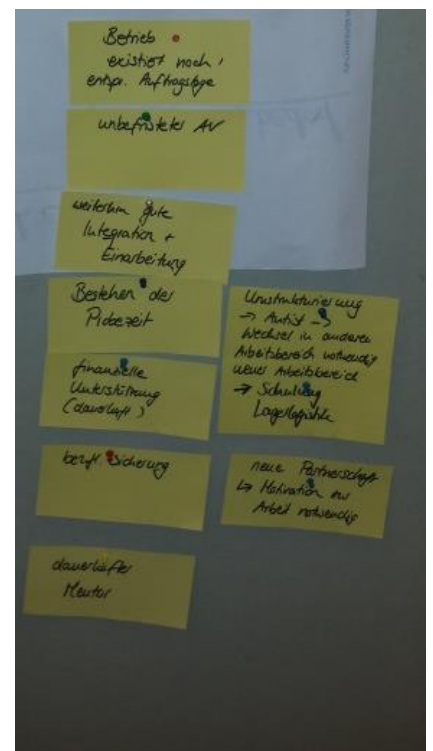 Betrieb
existiert noch,
entspr. Auftragslage
unbefristeter AV
weiterhin gute
Integration +
Einarbeitung
Bestehen der
Probezeit
finanzielle
Unterstützung
(dauerhaft)
berufl. Sicherung
dauerhafter
Mentor
Umstrukturierung
→ Autist →
Wechsel in anderen
Arbeitsbereich notwendig
neuer Arbeitsbereich
→ Schulung
Lagerlogistik
neue Partnerschaft
↳ Motivation zur
Arbeit notwendig